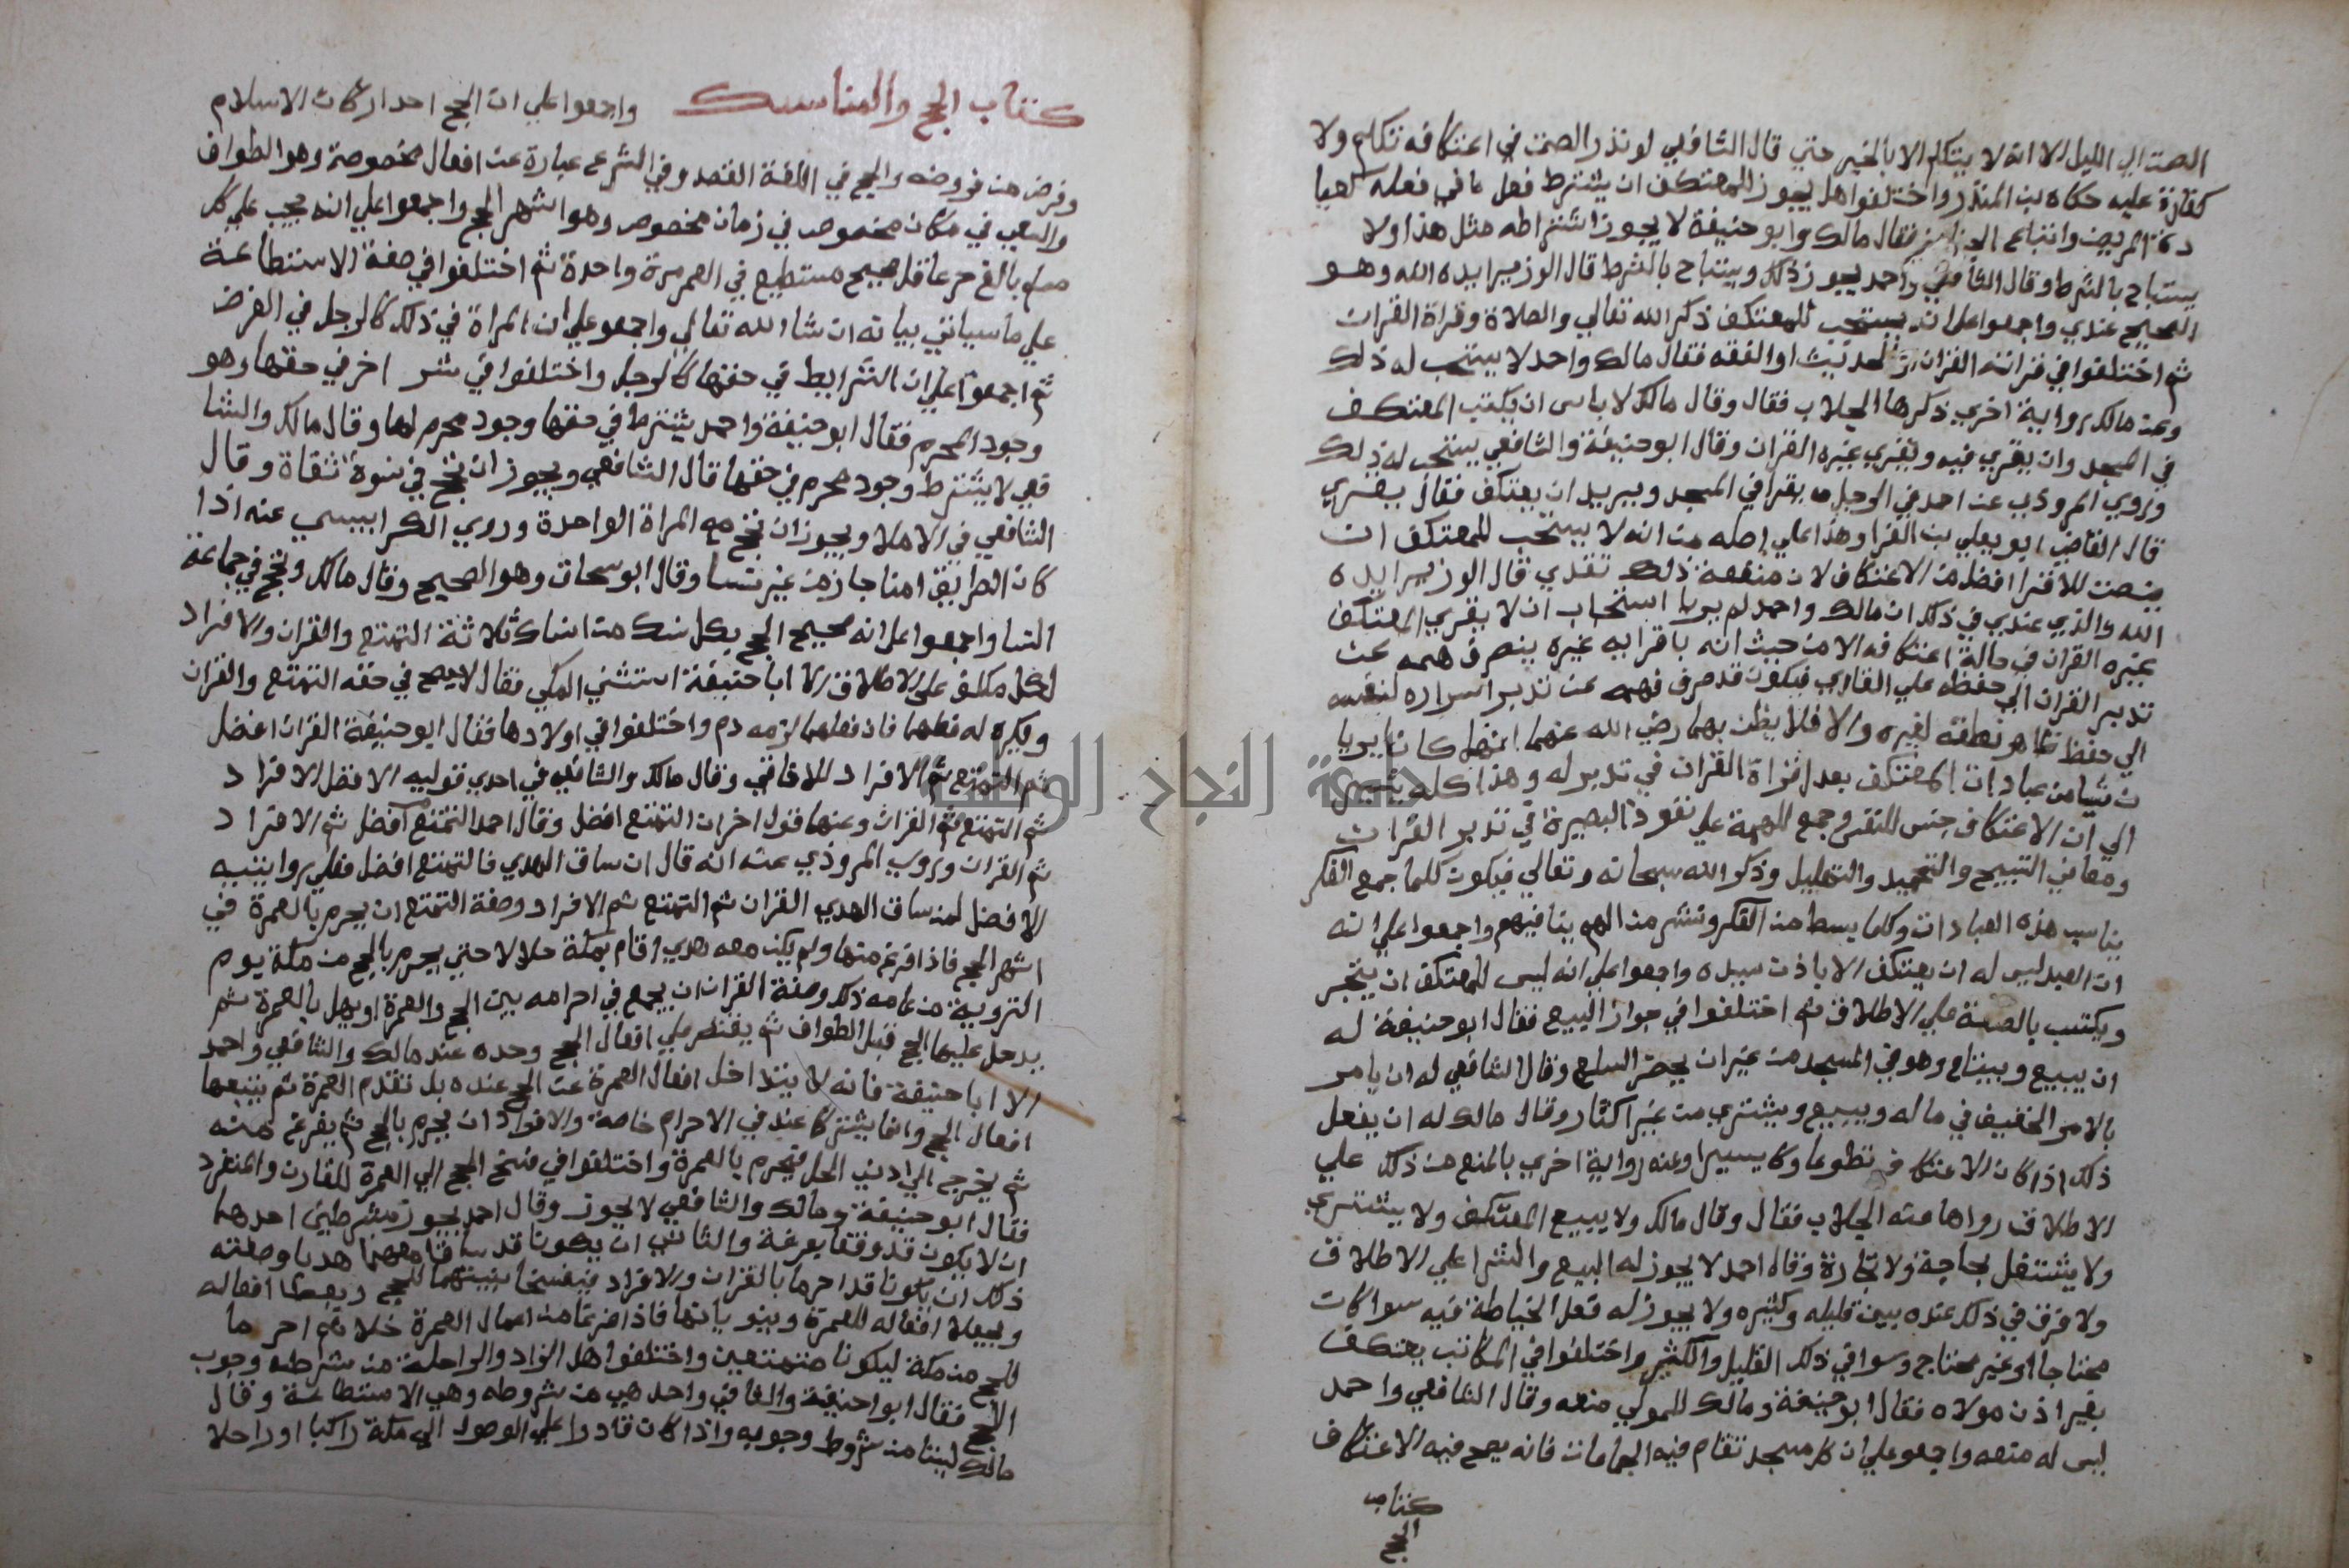 الصمت الي الليل الا انه لا يتكلم الا بالخير حتي قال الشافعي لو نذر الصمت في اعتكافه تكلم ولا
كفارة عليه حكاه بن المنذر واختلفوا هل يجوز للمعتكف ان يشترط فعل ما في فعله كعيا
دة المريض واتباع الجنايز فقال مالك وابو حنيفة لا يجوز اشتراطه مثل هذا ولا
يستباح بالشرط وقال الشافعي واحمد يجوز ذلك ويستباح بالشرط قال الوزير ايده الله وهو
الصحيح عندي واجمعوا علي انه يستحب للمعتكف ذكر الله تعالي والصلاة وقراة القران
ثم اختلفوا في قرائه القران والحديث او الفقه فقال مالك واحمد لا يستحب له ذلك
وعن مالك رواية اخري ذكرها الجلاب فقال وقال مالك لا باس ان يكتب المعتكف
في المسجد وان يقري فيه ويقري غيره القران وقال ابو حنيفة والشافعي يستحب له ذلك
وروي المروذي عن احمد في الرجل يقرا في المسجد ويريد ان يعتكف فقال يقري
قال القاضي ابو يعلي بن الفرا وهذا علي اصله من انه لا يستحب للمعتكف ان
ينصت للاقرا افضل من الاعتكاف لان منفعة ذلك تتعدي قال الوزير ايده
الله والذي عندي في ذلك ان مالك واحمد لم يريا استحباب ان لا يقري المعتكف
غيره القران في حالة اعتكافه الا من حيث انه باقرايه غيره ينصرف همه عن
تدبر القران الي حفظه علي القاري فيكون قد صرف فهمه عن تدبر اسراره لنفسه
الي حفظ ظاهر نطقه لغيره والا فلا يظن بهما رضي الله عنهما انهما كانا يريا
ن شيا من عبادات المعتكف بعد قراة القران في تدبر له وهذا كله يشير
الي ان الاعتكاف حبس للنفس وجمع للهمة علي نفوذ البصيرة في تدبر القران
ومعاني التسبيح والتحميد والتهليل وذكر الله سبحانه وتعالي فيكون كلما جمع الفكر
يناسب هذه العبادات وكلما بسط من الفكر ونشر من الهم ينافيهم واجمعوا علي انه
ان العبد ليس له ان يعتكف الا باذن سيده واجمعوا علي انه ليس للمعتكف ان يتجر
ويكتسب بالصنعة علي الاطلاق ثم اختلفوا في جواز البيع فقال ابو حنيفة له
ان يبيع ويبتاع وهو في المسجد من غير ان يحضر السلع وقال الشافعي له ان يامر
بالامر الخفيف في ماله ويبيع ويشتري من غير اكثار وقال مالك له ان يفعل
ذلك اذا كان الاعتكاف تطوعا وكان يسيرا وعنه رواية اخري بالمنع من ذلك علي
الاطلاق رواها عنه الجلاب فقال وقال مالك ولا يبيع المعتكف ولا يشتري
ولا يشتغل بحاجة ولا تجارة وقال احمد لا يجوز له البيع والشرا علي الاطلاق
ولا فرق في ذلك عنده بين قليله وكثيره ولا يجوز له فعل الخياطة فيه سوا كان
محتاجا او غير محتاج وسوا في ذلك القليل والكثير واختلفوا في المكاتب يعتكف
بغير اذن مولاه فقال ابو حنيفة ومالك للمولي منعه وقال الشافعي واحمد
ليس له منعه واجمعو علي ان كل مسجد تقام فيه الجماعات فانه يصح فيه الاعتكاف
كتاب
الحج
كتاب الحج والمناسك واجمعوا علي ان الحج احد اركان الاسلام
وفرض من فروضه والحج في اللغة القصد وفي الشرع عبارة عن افعال مخصوصة وهو الطواف
والسعي في مكان مخصوص في زمان مخصوص وهو اشهر الحج واجمعوا علي انه يجب علي كل
مسلم بالغ حر عاقل صحيح مستطيع في العمر مرة واحدة ثم اختلفوا في صفة الاستطاعة
علي ما سياتي بيانه ان شا الله تعالي واجمعو علي ان المراة في ذلك كالرجل في الفرض
ثم اجمعوا علي ان الشرايط في حقها كالرجل واختلفوا في شر اخر في حقها وهو
وجود المحرم فقال ابو حنيفة واحمد يشترط في حقها وجود محرم لها وقال مالك والشا
فعي لا يشترط وجود محرم في حقها قال الشافعي ويجوز ان تحج في نسوة ثقاة وقال
الشافعي في الاملا ويجوز ان تحج مع المراة الواحدة وروي الكرابيسي عنه اذا
كان الطريق امنا جاز من غير نسا وقال ابو سحاق وهو الصحيح وقال مالك وتحج في جماعة
النسا واجمعوا علي انه يصح الحج بكل نسك من انساك ثلاثة التمتع والقران والافراد
لكل مكلف علي الاطلاق الا ابا حنيفة استثني المكي فقال لا يصح في حقه التمتع والقران
ويكره له فعلهما فان فعلهما لزمه دم واختلفوا في اولادها فقال ابو حنيفة القران افضل
ثم التمتع ثم الافراد للافاقي وقال مالك والشافعي في احدي قوليه الافضل الافراد
ثم التمتع ثم القران وعنهما قول اخر ان التمتع افضل وقال احمد التمتع افضل ثم الافراد
ثم القران وروي المروذي عنه انه قال ان ساق الهدي فالتمتع افضل فعلي روايتيه
الافضل لمن ساق الهدي القران ثم التمتع ثم الافراد وصفة التمتع ان يحرم بالعمرة في
اشهر الحج فاذا فرغ منها ولم يكن معه هدي اقام بمكة حلالا حتي يحرم بالحج من مكة يوم
التروية من عامه ذلك وصفة القران ان يجمع في احرامه بين الحج والعمرة او يهل بالعمرة ثم
يدخل عليها الحج قبل الطواف ثم يقتصر علي افعال الحج وحده عند مالك والشافعي واحمد
الا ابا حنيفة فانه لا يتداخل افعال العمرة عن الحج عنده بل تقدم العمرة ثم يتبعها
افعال الحج وانما يشتركا عنده في الاحرام خاصة والافراد ان يحرم بالحج ثم يفرغ منه
ثم يخرج الي ادني الحل فيحرم بالعمرة واختلفوا في فسخ الحج الي العمرة للقارن والمنفرد
فقال ابو حنيفة ومالك والشافعي لا يجوز وقال احمد يجوز بشرطين احدهما
ان لا يكون قد وقفا بعرفة والثاني ان يكونا قد ساقا معهما هديا وصفته
ذلك ان يكونا قد احرما بالقران والافراد فيفسخا نيتهما للحج ويقطعا افعاله
ويجعلا افعاله للعمرة وينويانها فاذا فرغا من اعمال العمرة حلا ثم احرما
للحج من مكة ليكونا متمتعين واختلفوا هل الزاد والراحلة من شرط وجوب
الحج فقال ابو احنيفة والشافعي واحمد هي من شروطه وهي الاستطاعة وقال
مالك ليستا من شروط وجوبه واذا كان قادرا علي الوصول الي مكة راكبا او راجلا
جامعة النجاح الوطنية